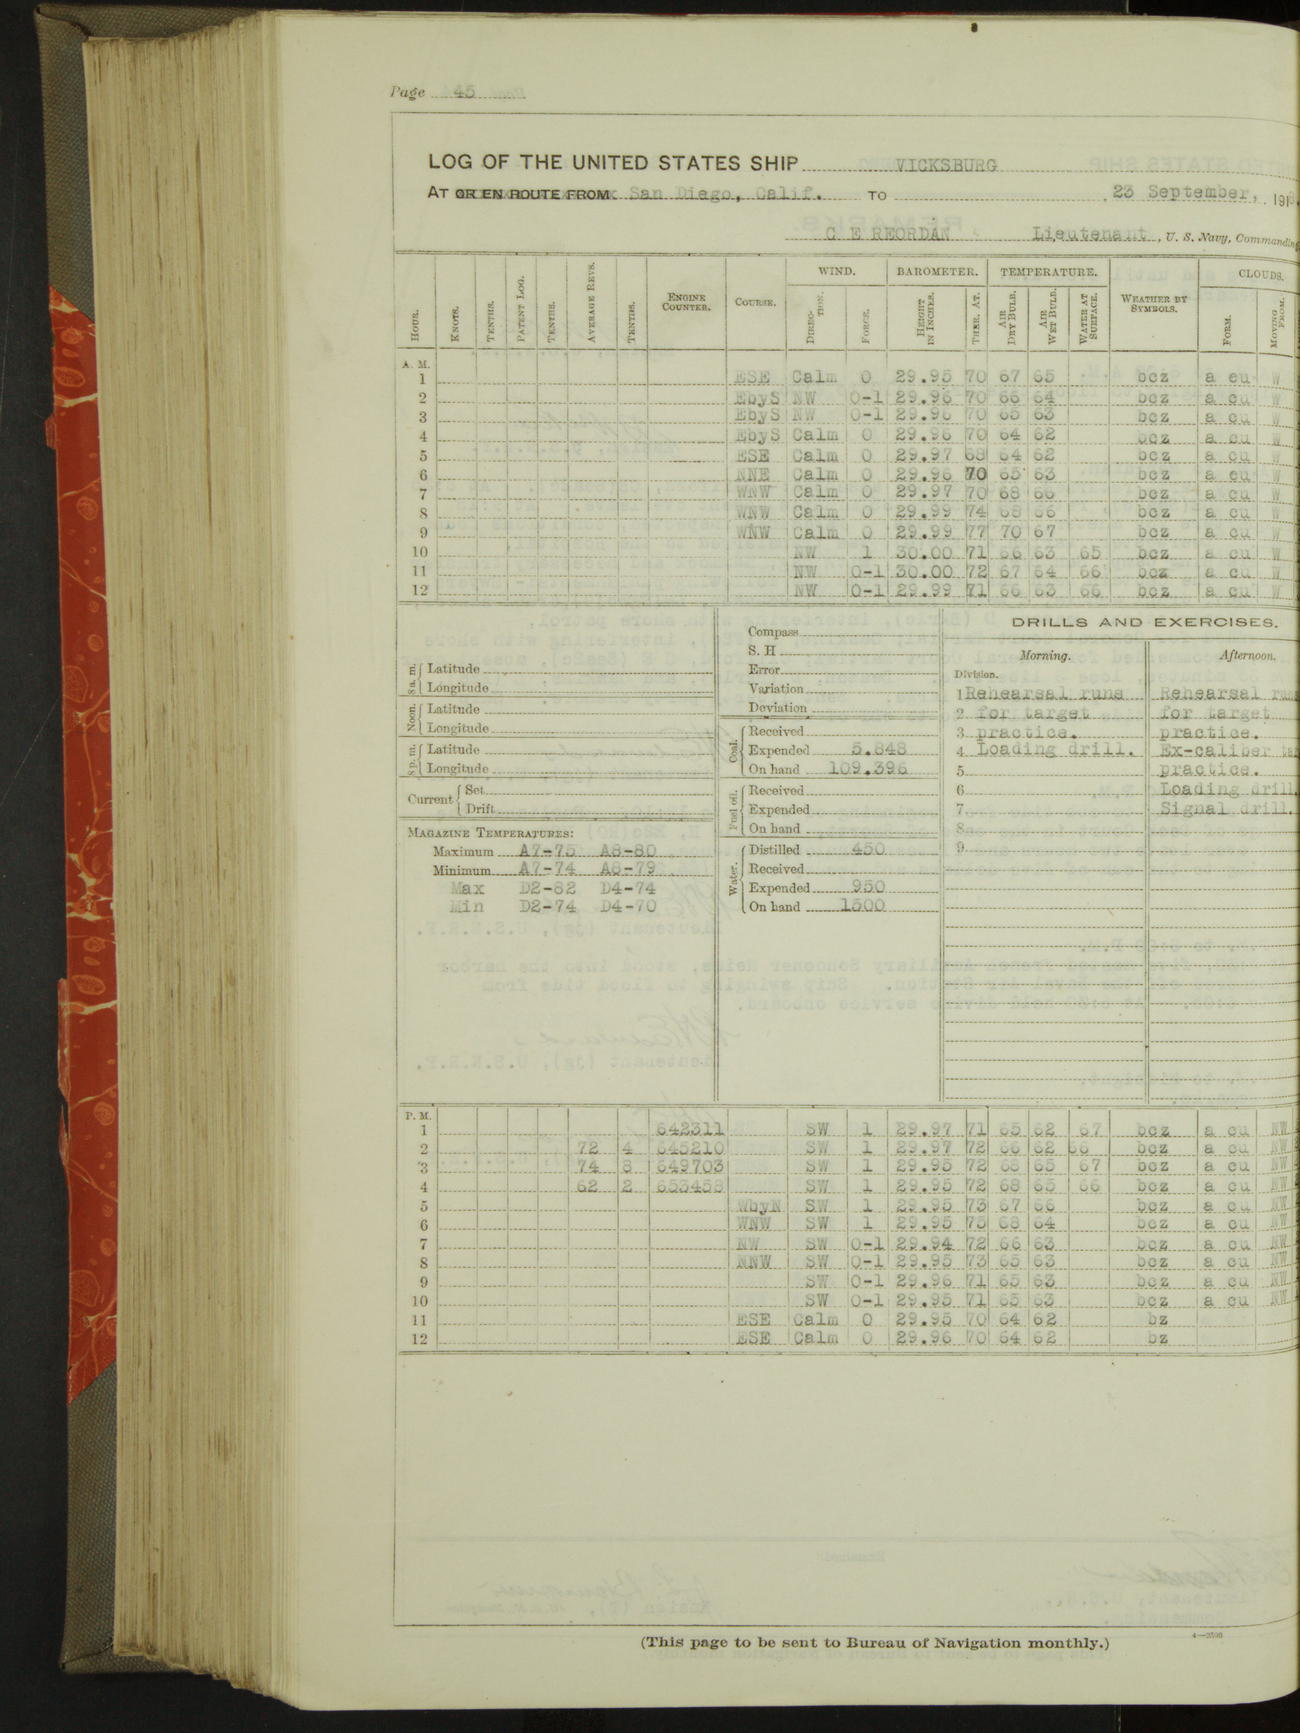 Page 45
LOG OF THE UNITED STATES SHIP VICKSBURG
AT OR EN ROUTE FROM San Diego, Calif. TO 23 September, 191
C E REORDAN Lieutenant, U. S. Navy, Commanding
WIND. BAROMETER. TEMPERATURE. CLOUDS.
HOUR. KNOTS. TENTHS. PATENT LOG. TENTHS. AVERAGE REVS. TENTHS. ENGINE COUNTER. COURSE. DIRECTION. FORCE. HEIGHT IN INCHES. THER. AT. AIR DRY BULB. AIR WET BULB. WATER AT SURFACE. WEATHER BY SYMBOLS. FORM. MOVING FROM.
A. M.
1 ESE Calm 0 29.95 70 67 65 bcz a cu W
2 EbyS NW 0-1 29.96 70 66 64 bcz a cu W
3 EbyS NW 0-1 29.96 70 65 63 bcz a cu W
4 EbyS Calm 0 29.96 70 64 62 bcz a cu W
5 ESE Calm 0 29.97 68 64 62 bcz a cu W
6 NNE Calm 0 29.96 70 65 63 bcz a cu W
7 WNW Calm 0 29.97 70 68 66 bcz a cu W
8 WNW Calm 0 29.99 74 68 66 bcz a cu W
9 WNW Calm 0 29.99 77 70 67 bcz a cu W
10 NW 1 30.00 71 66 63 65 bcz a cu W
11 NW 0-1 30.00 72 67 64 66 bcz a cu W
12 NW 0-1 29.99 71 66 63 66 bcz a cu W
8 a. m. Latitude
Longitude
Noon. Latitude
Longitude
8 p. m. Latitude
Longitude
Current Set
Drift
MAGAZINE TEMPERATURES:
Maximum A7-75 A8-80
Minimum A7-74 A8-79
Max D2-82 D4-74
Min D2-74 D4-70
Compass
S. H
Error
Variation
Deviation
Coal. Received
Expended 5.848
On hand 109.396
Fuel oil. Received
Expended
On hand
Water. Distilled 450
Received
Expended 950
On hand 1500
DRILLS AND EXERCISES.
Morning. Afternoon.
Division.
1 Rehearsal runs Rehearsal runs
2 for target for target
3 practice. practice.
4 Loading drill. Ex-caliber
5 practice.
6 Loading drill.
7 Signal drill.
8
9
P. M.
1 642311 SW 1 29.97 71 65 62 67 bcz a cu NW
2 72 4 645210 SW 1 29.97 72 66 62 66 bcz a cu NW
3 74 8 649703 SW 1 29.95 72 68 65 67 bcz a cu NW
4 62 2 653458 SW 1 29.95 72 68 65 66 bcz a cu NW
5 WbyN SW 1 29.95 73 67 66 bcz a cu NW
6 WNW SW 1 29.95 73 68 64 bcz a cu NW
7 NW SW 0-1 29.94 72 66 63 bcz a cu NW
8 NNW SW 0-1 29.95 73 65 63 bcz a cu NW
9 SW 0-1 29.96 71 65 63 bcz a cu NW
10 SW 0-1 29.95 71 65 63 bcz a cu NW
11 ESE Calm 0 29.95 70 64 62 bz
12 ESE Calm 0 29.96 70 64 62 bz
(This page to be sent to Bureau of Navigation monthly.)